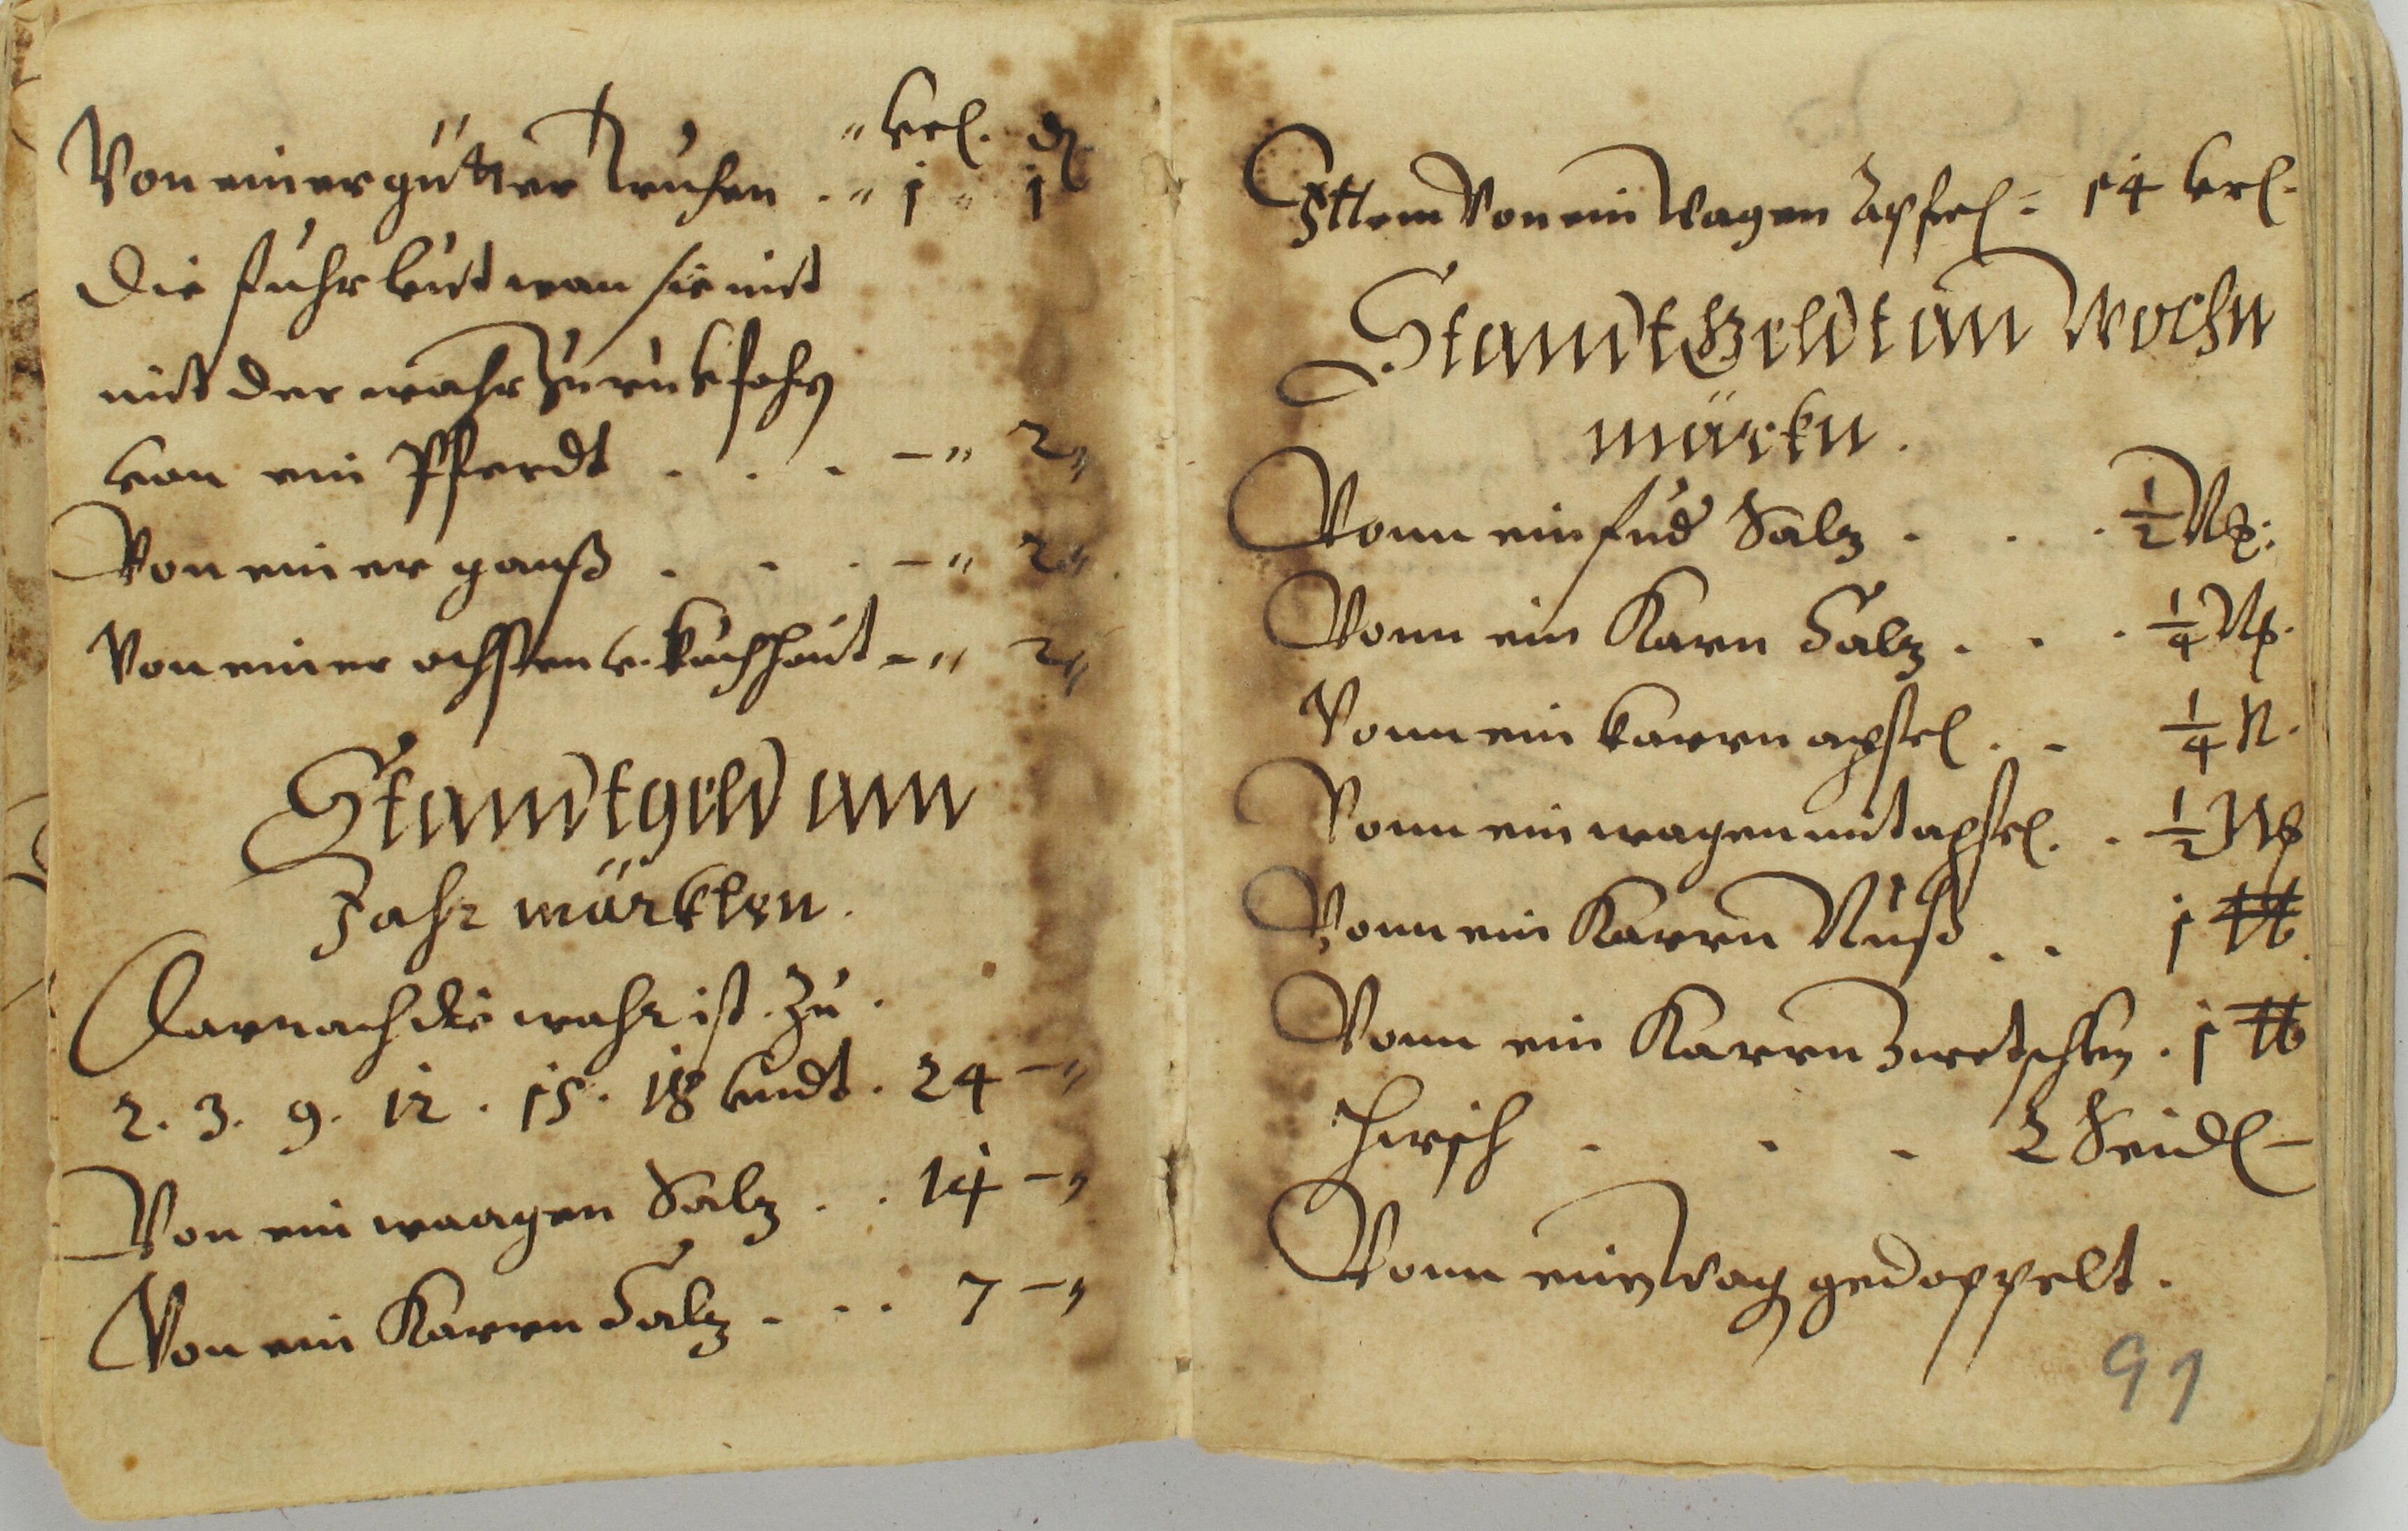 " krl. d
Von einer gütter Truhen . " 1 " 1
Die fuhrleut wan sie mit
mit der wahr Zurukfahrn
von ein Pferdt . . . — " 2 "
Von einer ganß . . . — " 2 "
Von einer ochsen k. Kuehhaut — " 2 "
Standtgeld am
Jahr märkten .
Darnach die wahr ist . zu .
2 . 3 . 9 . 12 . 15 . 18 undt . 24 — "
Von ein waagen Saltz . . 14 — "
Von ein Karrn Saltz . . . 7 — "
Ittem Von ein Wagen Äpfel = 14 krl.
Standt Geldt an Wochn
märktn .
Vonn ein fud Saltz . . . ½
Vonn ein Karn Saltz . . . ¼
Vonn ein karrn apfel . . ¼
Vonn ein wagen mit apfel . . ½
Vonn ein Karrn Nuß . . 1 ℔
Vonn ein Karrn Zwetschkn . 1 ℔
Hirsch . . . 2 Seidl —
Vonn ein Wag gedoppelt .
91